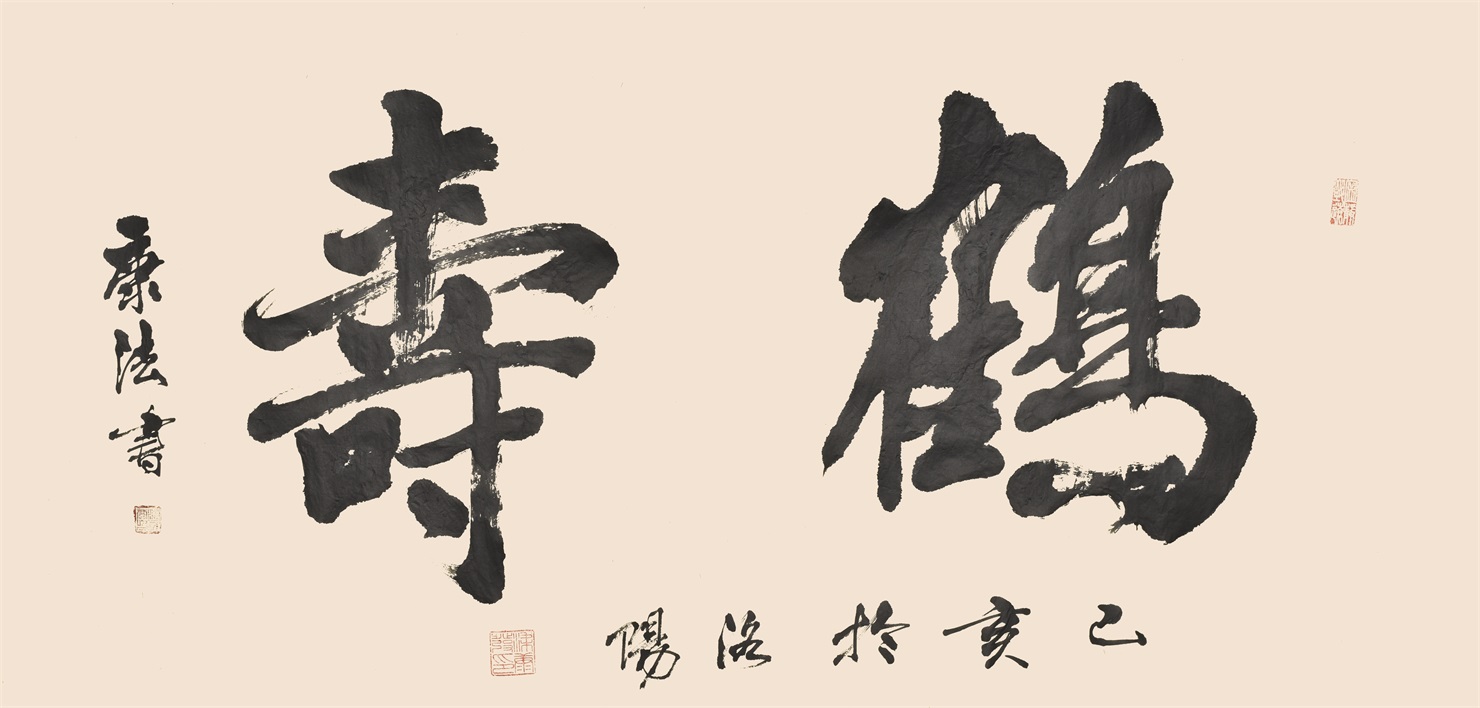 鶴壽
己亥於洛陽
康法書